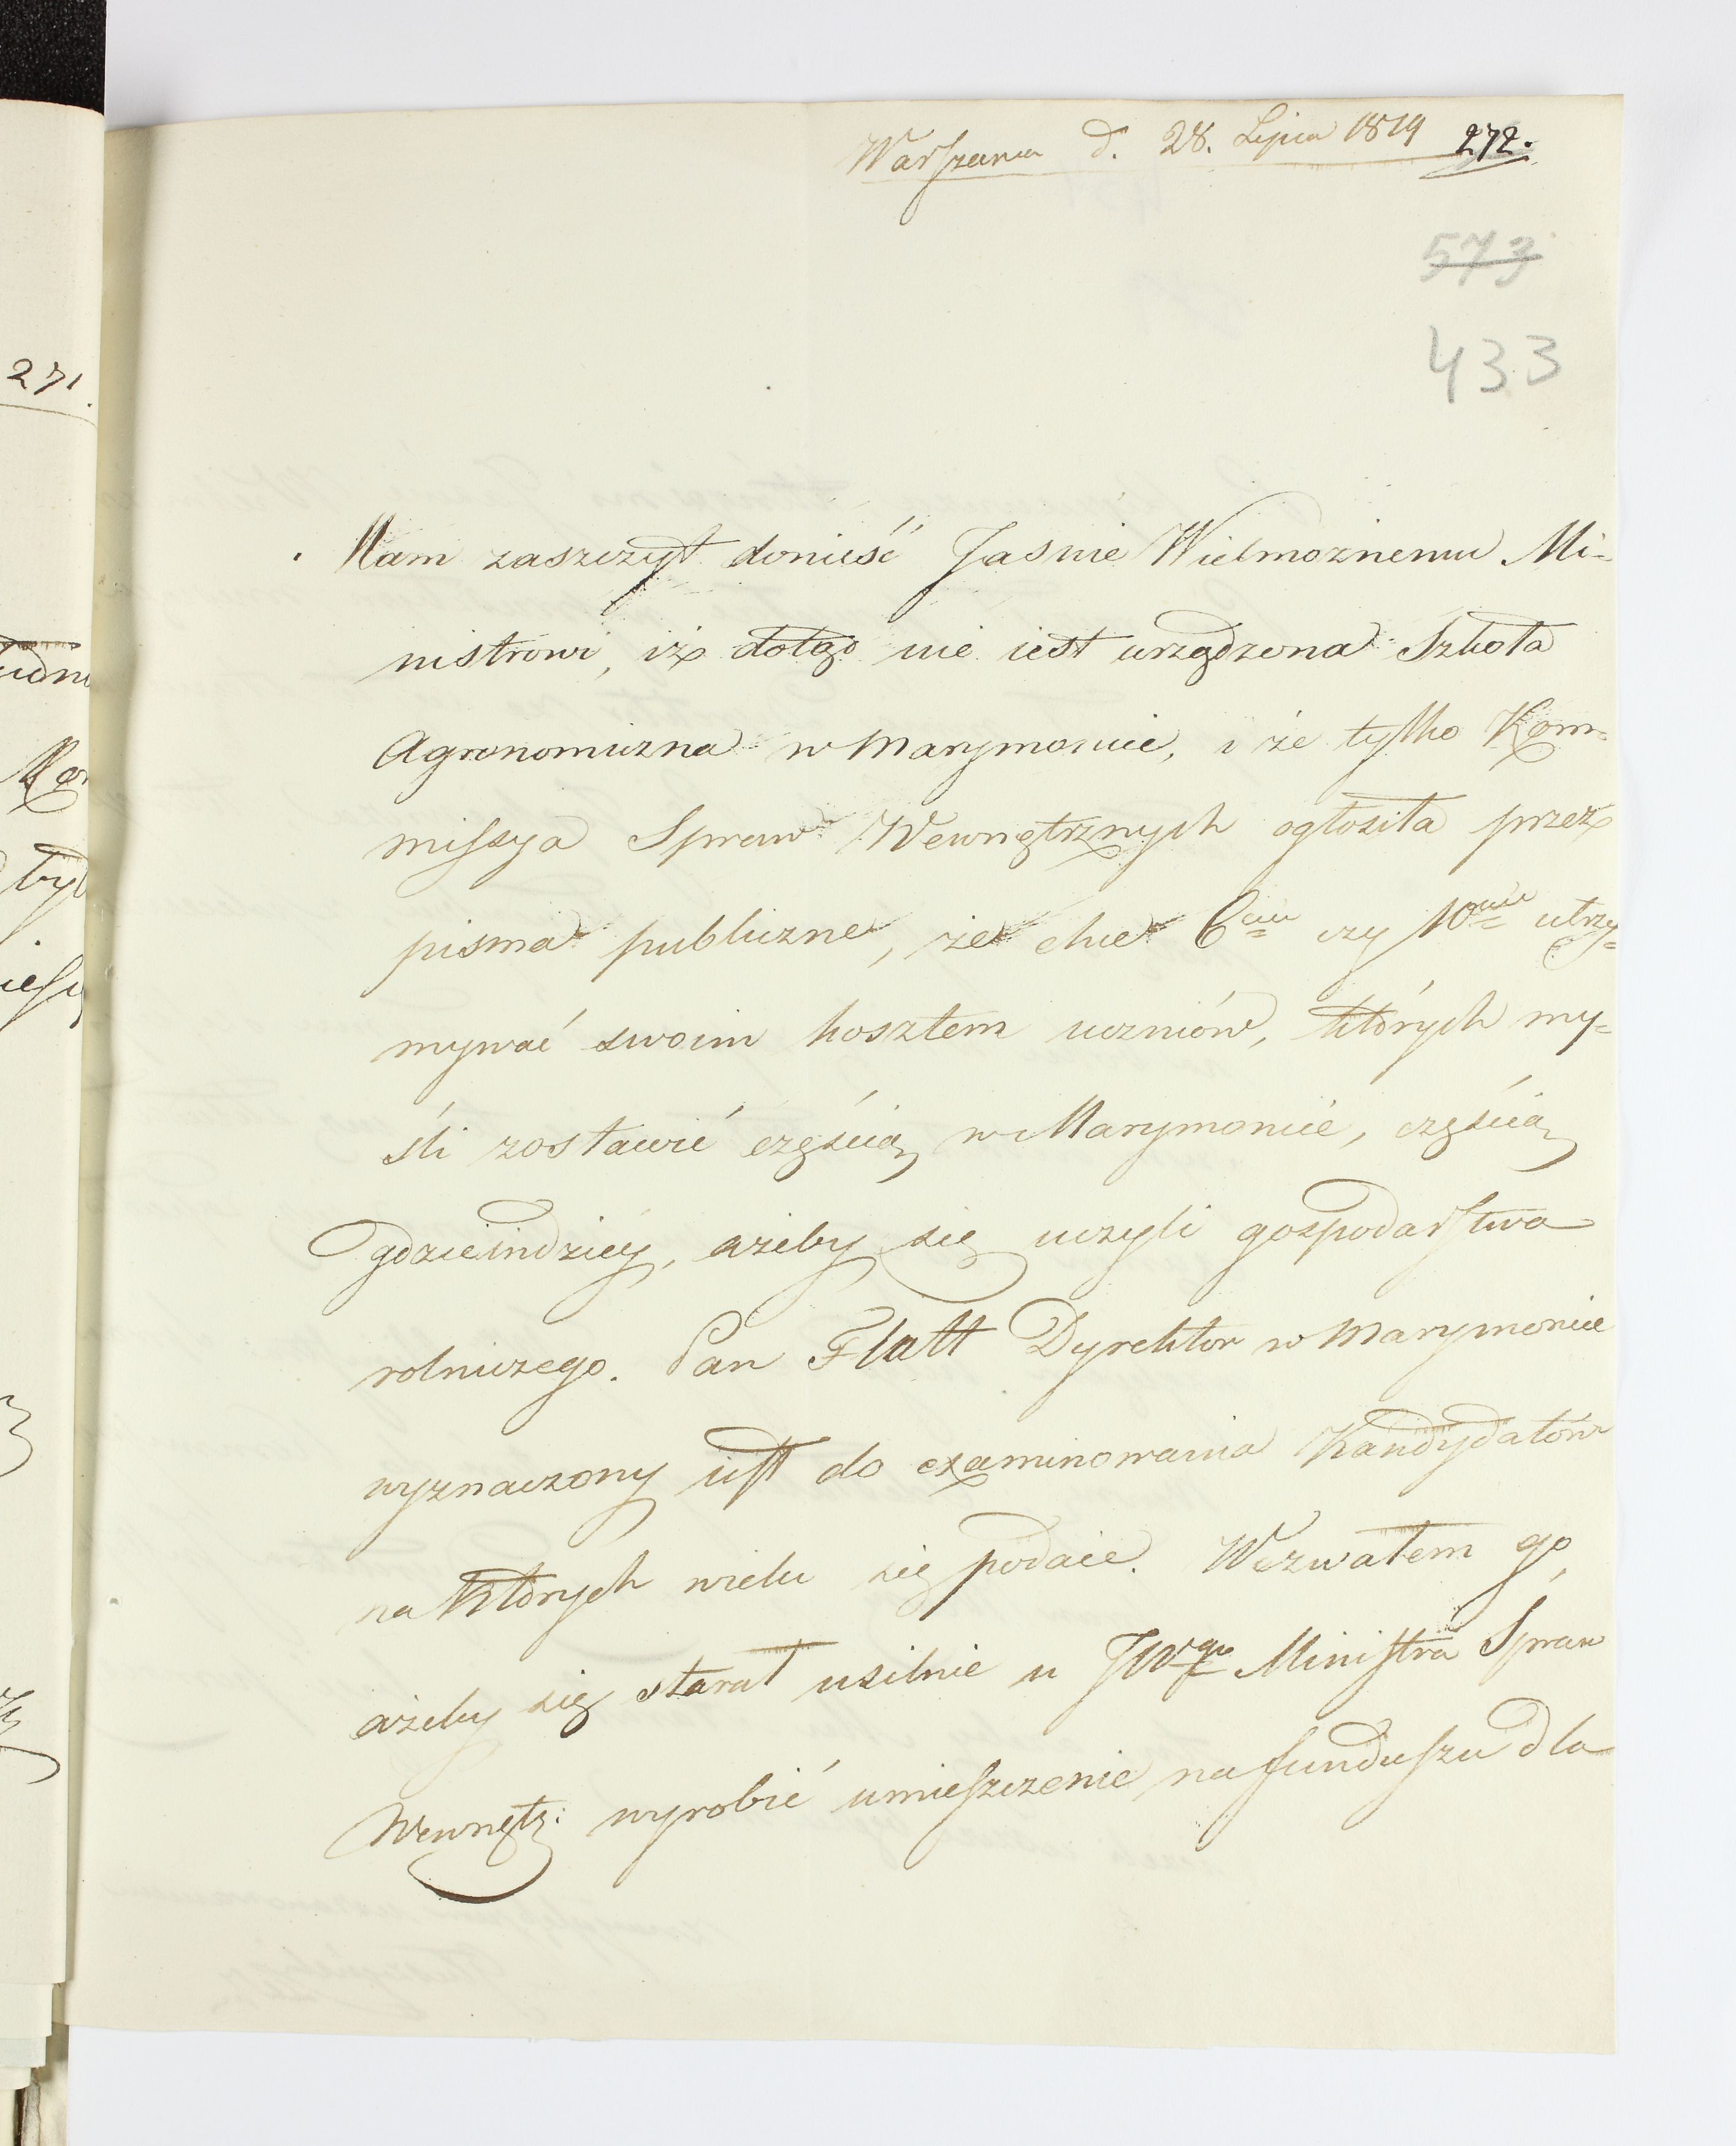 Warszawa d. 28. Lipca 1819 272.
573
433
271.
Mam zaszczyt donieść Jaśnie Wielmożnemu Mi-
nistrowi, iż dotąd nie iest urządzona Szkoła
Agronomiczna w Marymoncie, i że tylko Kom-
missya Spraw Wewnętrznych ogłosiła przez
pisma publiczne, że chce 6ciu czy 10ciu utrzy-
mywać swoim kosztem uczniów, których my-
śli zostawić częścią w Marymoncie, częścią
gdzieindziéy, ażeby się uczyli gospodarstwa
rolniczego. Pan Flatt Dyrektor w Marymoncie
wyznaczony iest do examinowania Kandydatów
na których wielu się podaie. Wezwałem go,
ażeby się starał usilnie u JWgo Ministra Spraw
Wewnętz: wyrobić umieszczenie na funduszu dla